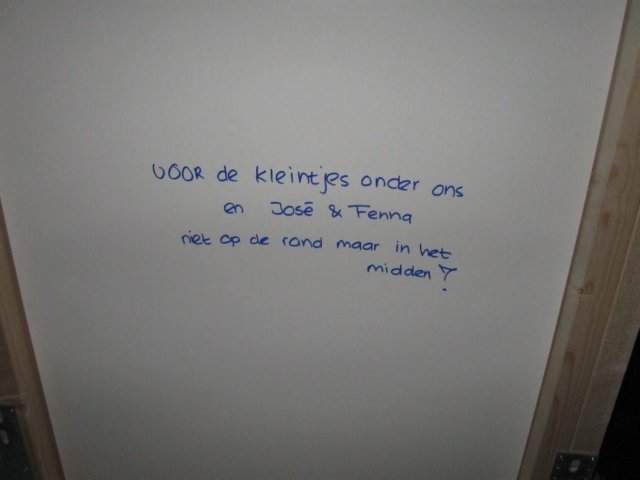 VOOR de kleintjes onder ons
en José & Fenna
niet op de rand maar in het
midden!